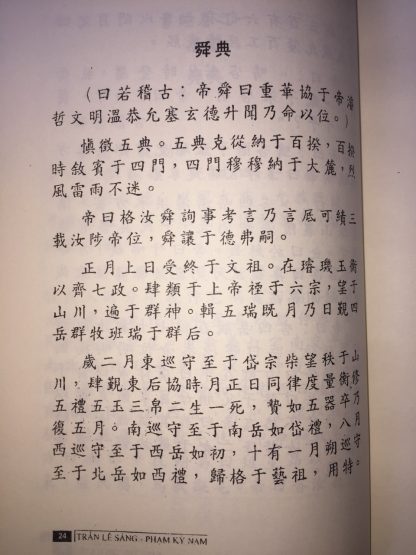 舜典
(曰若稽古：帝舜曰重華協于帝濬
哲文明溫恭允塞玄德升聞乃命以位。)
慎徽五典。五典克從納于百揆，百揆
時敘賓于四門，四門穆穆納于大麓，烈
風雷雨不迷。
帝曰格汝舜詢事考言乃言厎可績三
載汝陟帝位，舜讓于德弗嗣。
正月上日受終于文祖。在璿璣玉衡
以齊七政。肆類于上帝禋于六宗，望于
山川，遍于群神。輯五瑞既月乃日覲四
岳群牧班瑞于群后。
歲二月東巡守至于岱宗柴望秩于山
川，肆覲東后協時月正日同律度量衡修
五禮五玉三帛二生一死，贄如五器卒乃
復五月。南巡守至于南岳如岱禮，八月
西巡守至于西岳如初，十有一月朔巡守
至于北岳如西禮，歸格于藝祖，用特。
24 TRẦN LÊ SÁNG - PHẠM KỲ NAM